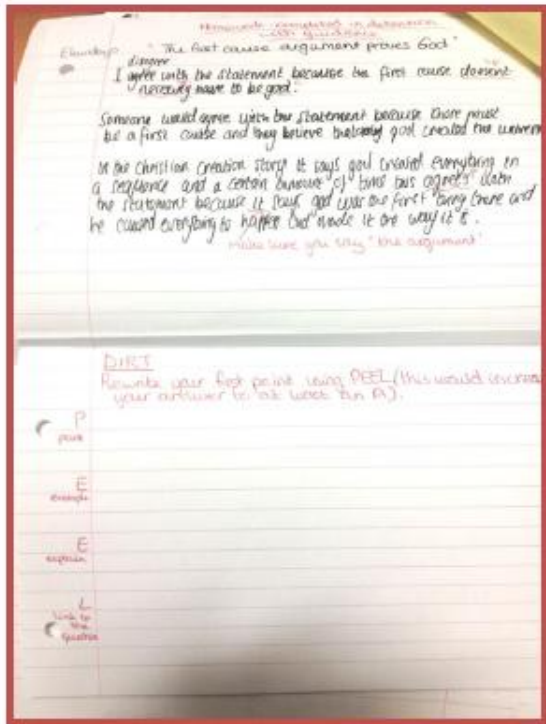 Homework completed in detention
with guidance
"The first cause argument proves God"
disagree
I agree with the statement because the first cause doesent
necessarily have to be god.
Someone would agree with the statement because there must
be a first cause and they believe that god created the univers
In the Christian creation story it says god created everything in
a sequence and a certain amount of time this agrees with
the statement because it says god was the first being there and
he caused everything to happen and made it the way it is.
Make sure you say "the argument"
DIRT
Rewrite your first point using PEEL (this would increa
your answer to at least an A).
P
point
E
example
E
explain
L
link to
the
question